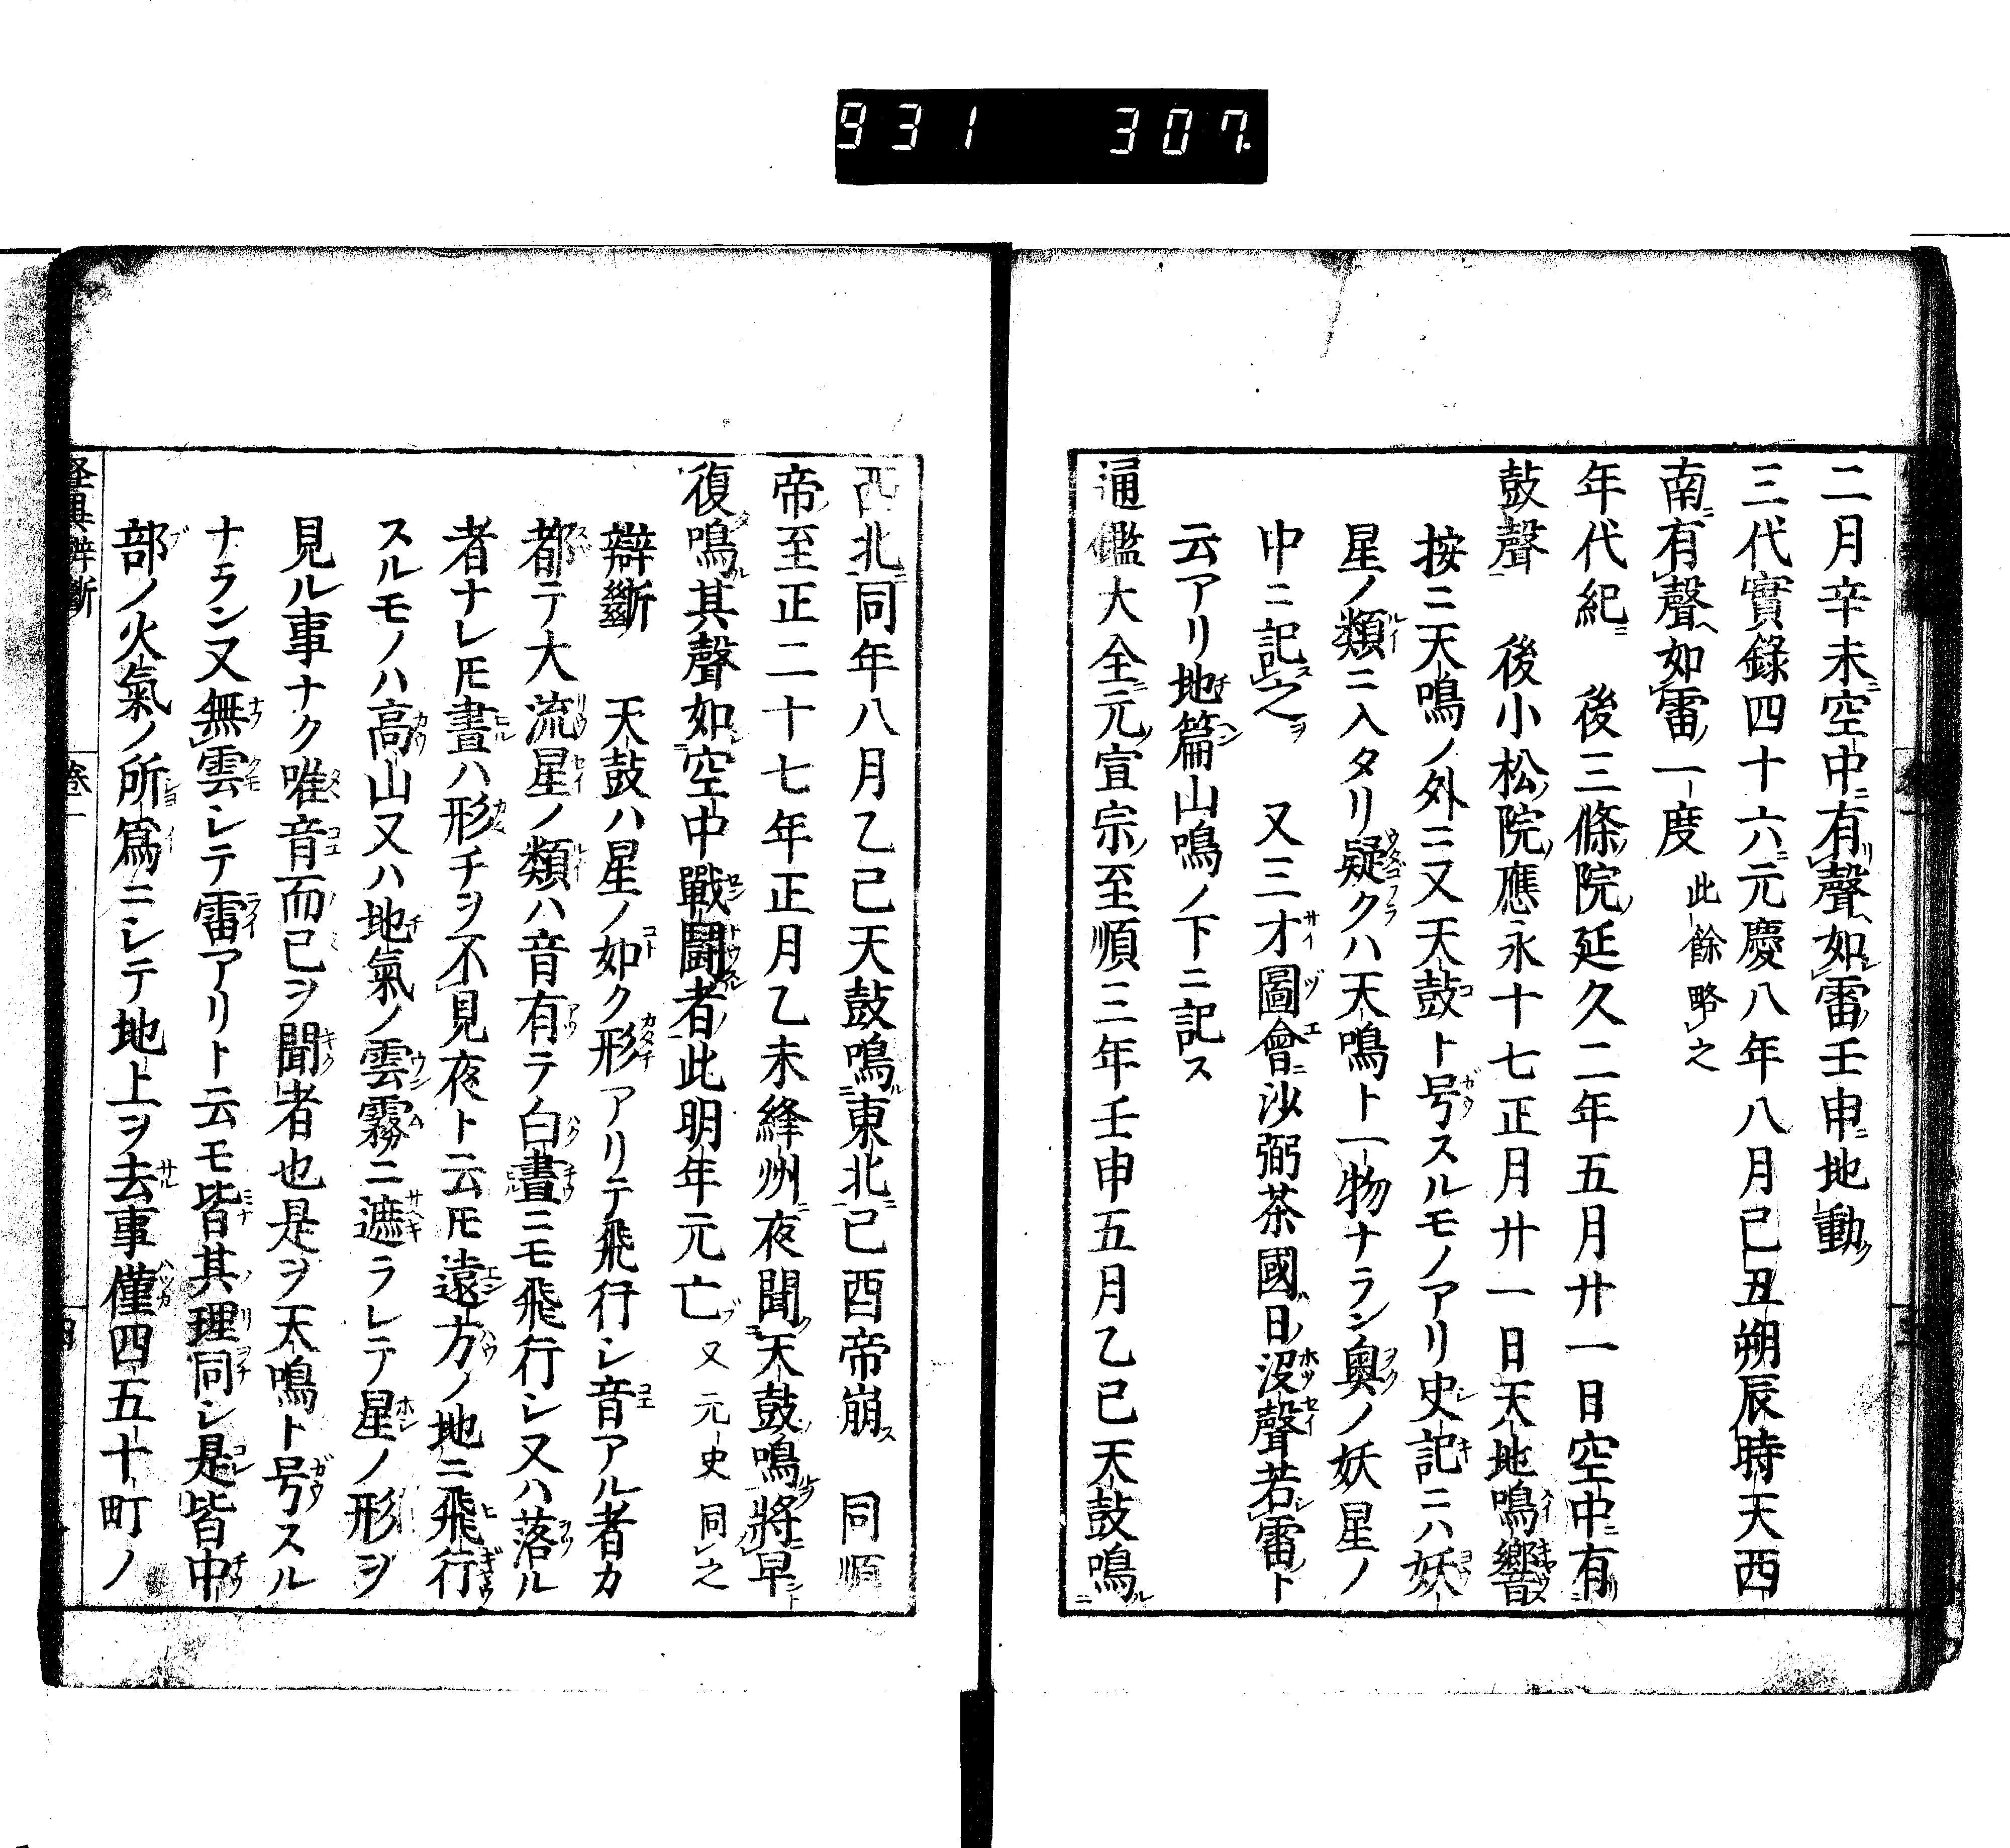 931 307.
二月辛未空中有聲如雷壬申地動
三代實錄四十六元慶八年八月己丑朔辰時天西
南有聲如雷一度 此餘略之
年代紀 後三條院延久二年五月廿一日空中有
鼓聲 後小松院應永十七正月廿一日天地鳴響
按ニ天鳴ノ外ニ又天鼓ト号スルモノアリ史記ニハ妖
星ノ類ニ入タリ疑クハ天鳴ト一物ナラン奥ノ妖星ノ
中ニ記之 又三才圖會沙弼茶國日沒聲若雷ト
云アリ地篇山鳴ノ下ニ記ス
通鑑大全元宣宗至順三年壬申五月乙巳天鼓鳴
西北同年八月乙巳天鼓鳴東北己酉帝崩 同順
帝至正二十七年正月乙未絳州夜聞天鼓鳴將旦
復鳴其聲如空中戰鬪者此明年元亡 又元史同之
辯斷 天鼓ハ星ノ如ク形アリテ飛行シ音アル者カ
都テ大流星ノ類ハ音有テ白晝ニモ飛行シ又ハ落ル
者ナレ𪜈晝ハ形チヲ不見夜ト云𪜈遠方ノ地ニ飛行
スルモノハ高山又ハ地氣ノ雲霧ニ遮ラレテ星ノ形ヲ
見ル事ナク唯音而已ヲ聞者也是ヲ天鳴ト号スル
ナラン又無雲シテ雷アリト云モ皆其理同シ是皆中
部ノ火氣ノ所爲ニシテ地上ヲ去事僅四五十町ノ
怪異辨斷 卷一